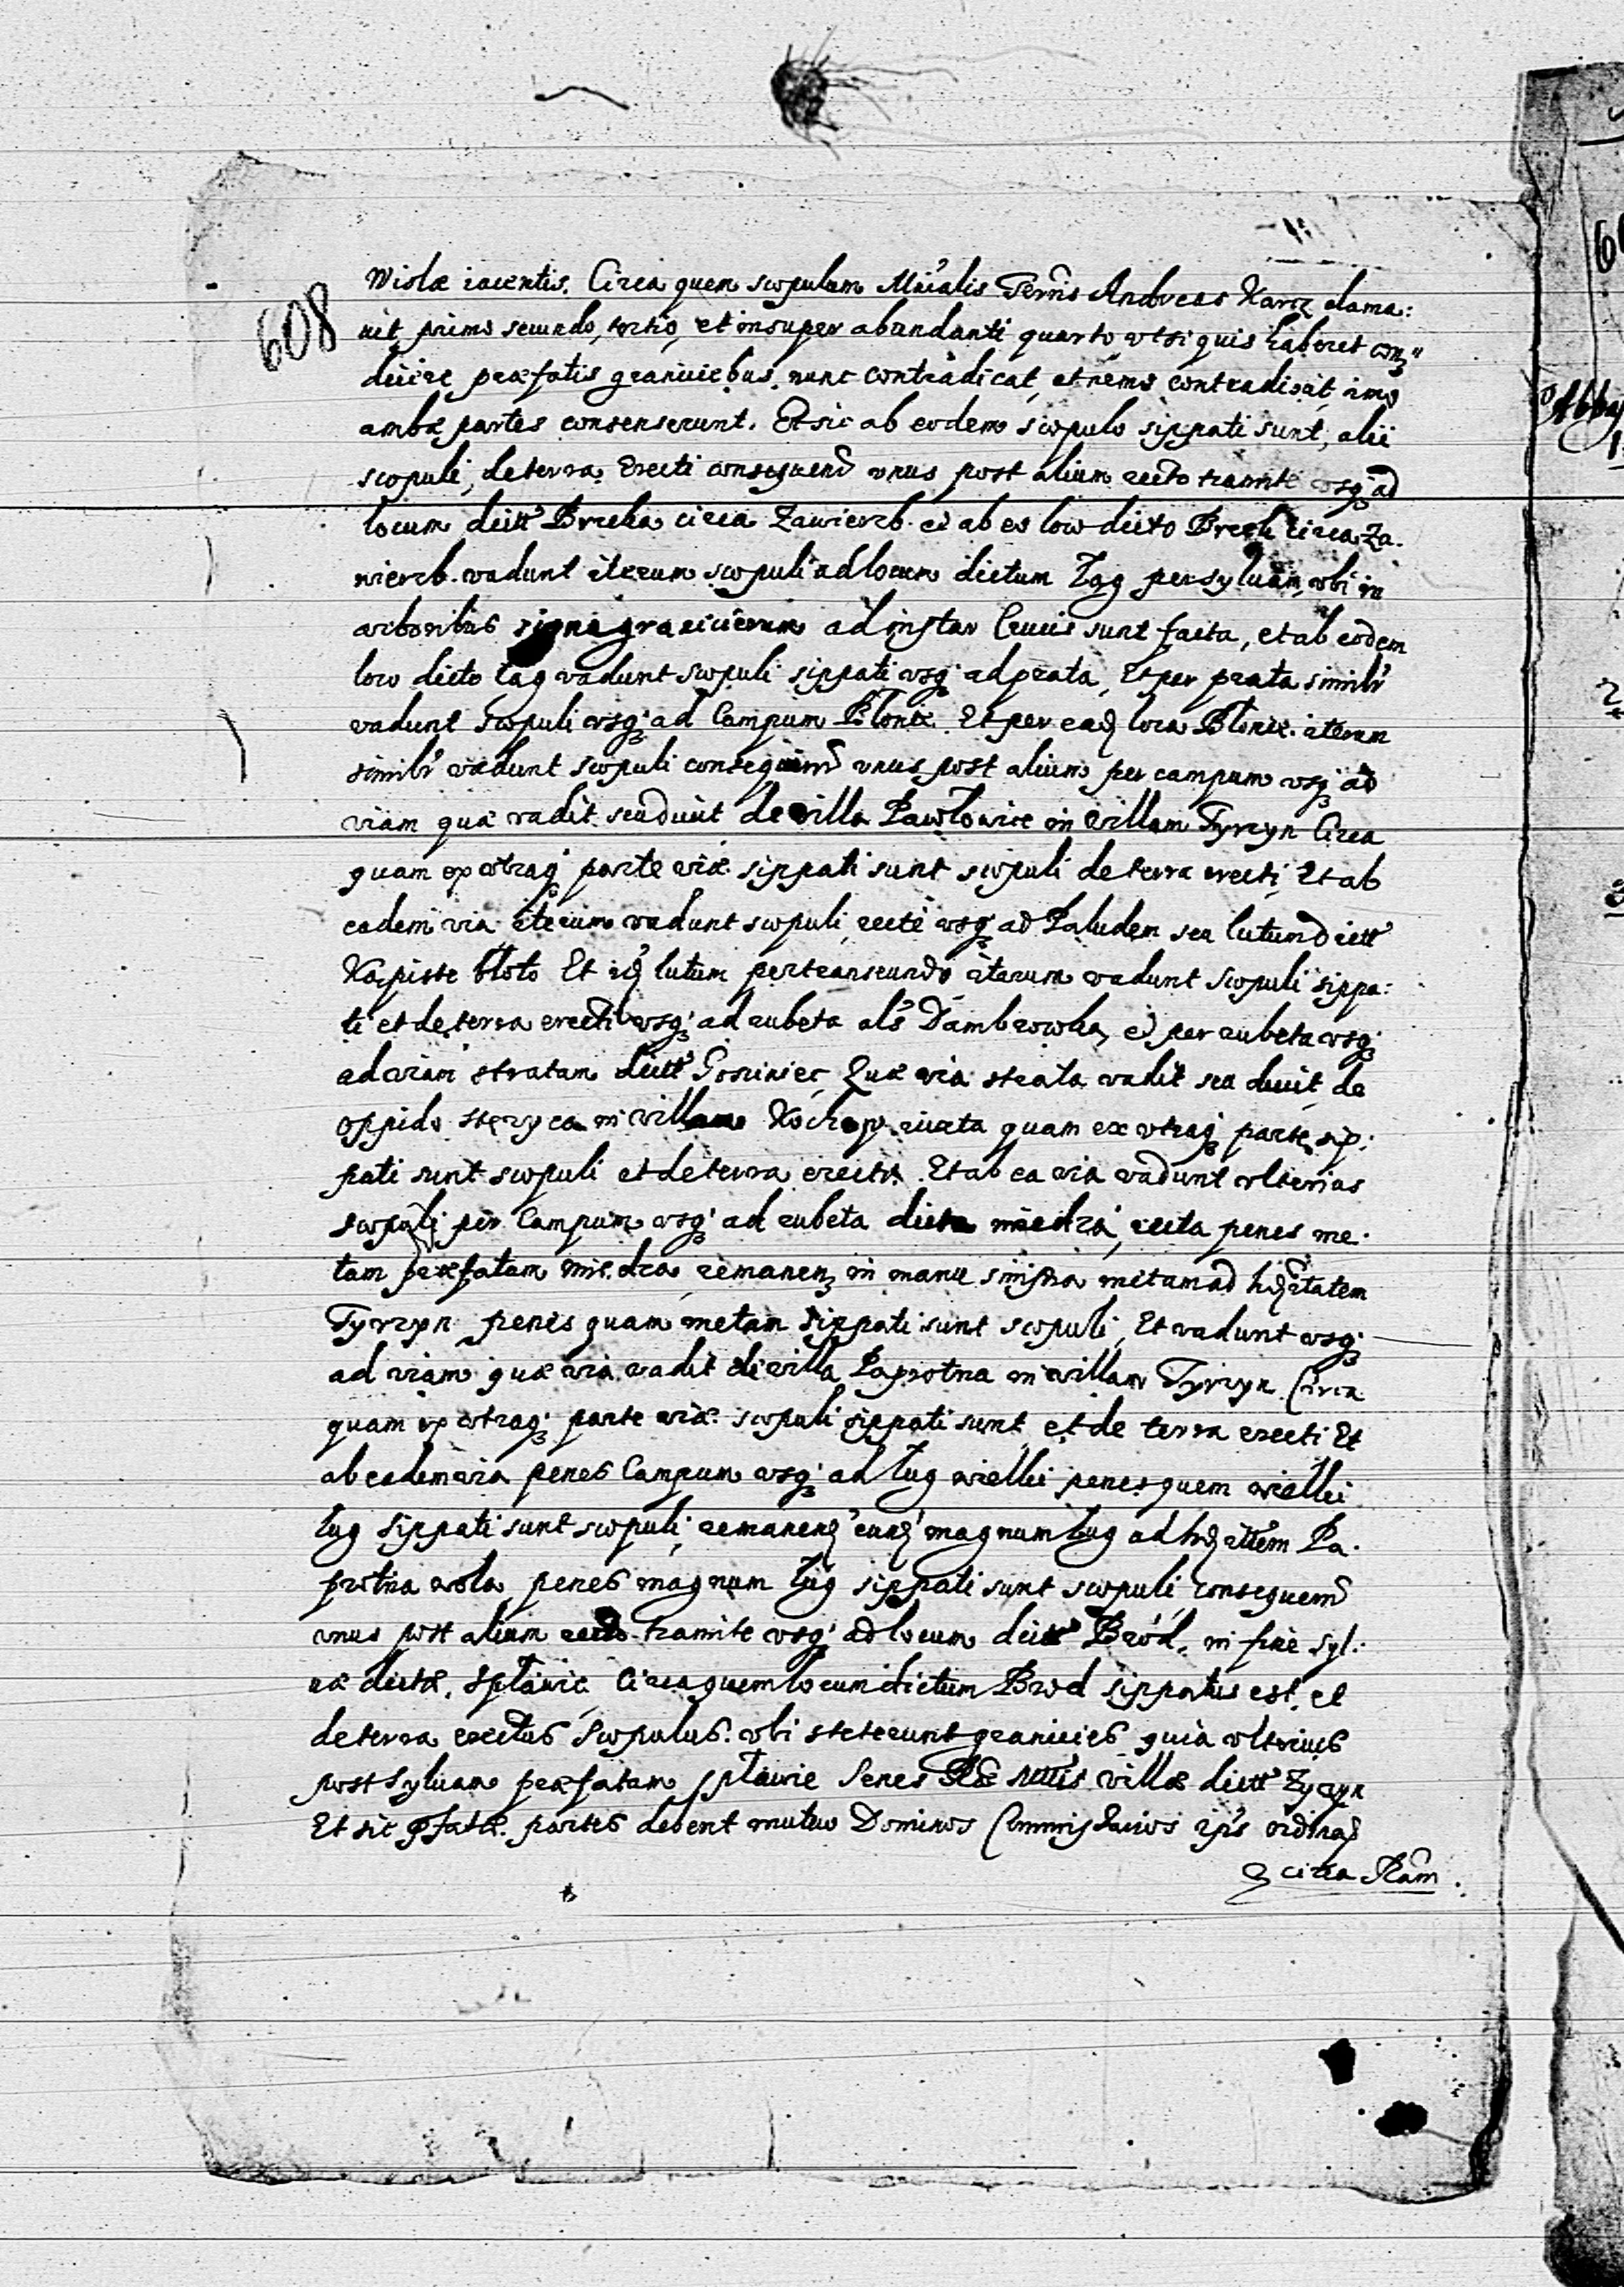 608
Wislæ iacentis. Circa quem scopulum Mińialis Terrῆis Andreas Karcz clama:
uit, primo secundo, tertio, et insuper abundanti quarto, vtsi quis haberet con"
dicere præfatis graniciebus. nunc contradicat, et nemo contradixit, imo
ambæ partes consenserunt. Et sic ab eodem scopulo sippati sunt, alii
scopuli, de terra erecti consequenῦ vnus post alium recto tramite vsqꝫ ad
locum dictῦ Brzeka circa Zawierzb. et ab eo loco dicto Brzek circa Za.
wierzb. vadunt iterum scopuli ad locum dictum Łąg per syluam, vbi in
arboribus signa granicierum ad instar Crucis sunt facta, et ab eodem
loco dicto Łag vadunt scopuli sippati vsqꝫ ad prata, Et per prata similr̃
vadunt scopuli vsqꝫ ad Campum Błonie. Et per eadꝫ loca Błonie. iterum
similr̃ vadunt scopuli consequenῦ vnus post alium per campum vsqꝫ ad
viam quæ vadit seu ducit de villa Pawłowice in villam Tyrzyn Circa
quam ex vtraqꝫ parte viæ. sippati sunt scopuli de terra erecti, Et ab
eadem via iterum vadunt scopuli, recte vsqꝫ ad Paludem seu lutum dictῦ
Kąpiste błoto Et idꝫ lutum pertranseundo iterum vadunt scopuli sippa:
ti et de terra erecti vsqꝫ ad rubeta als Dambrowka, et per rubeta vsqꝫ
ad viam stratam dictῦ Gosciniec, Quæ via strata vadit seu ducit de
oppido stęzyca in villam Kochow. iuxta quam ex vtraqꝫ parte sip:
pati sunt scopuli et de terra erecti. Et ab ea via vadunt vlterius
scopuli per Campum vsqꝫ ad rubeta dicta miedza, recta penes me.
tam præfatam miedza, remanenꝫ in manu sinistra metam ad hꝫditatem
Tyrzyn penes quam metam sippati sunt scopuli, Et vadunt vsqꝫ
ad viam quæ via vadit de villa Paprotna in villam Tyrzyn Circa
quam ex vtraqꝫ parte viæ. scopuli sippati sunt et de terra erecti Et
ab eadem via penes Campum vsqꝫ ad Ług wielki penes quem wielki
Ług sippati sunt scopuli, remanenꝫ eundꝫ magnum Ług ad hꝫdittem Pa.
protna wola penes magnum Ług sippati sunt scopuli consequenῦ
vnus post alium recto tramite vsqꝫ ad locum dictῦ Bród. in fine syl:
uæ dictæ. spławie Circa quem locum dictum Brod sippatus est et
de terra erectus scopulus. vbi steterunt granicies quia vlterius
post syluam præfatam spławie senes villæ dictῦ Zyczyn
Et sic pfatæ. partes debent mutuo Dominos Commissarios
citra